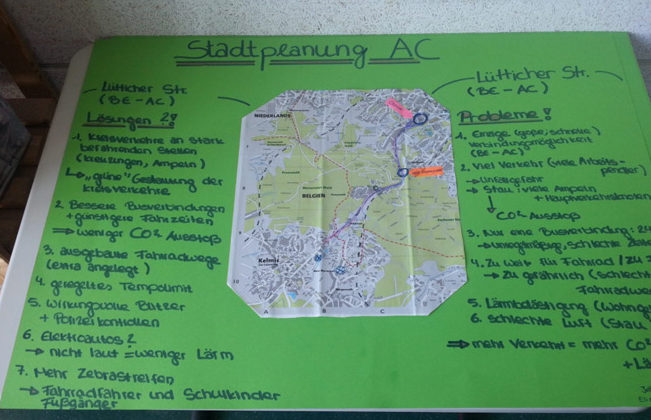 Stadtplanung AC
Lütticher Str.
(BE - AC)
Lösungen ?!
1. Kreisverkehre an stark
befahrenden Stellen
(Kreuzungen, Ampeln)
↳ „grüne" Gestaltung der
Kreisverkehre
2. Bessere Busverbindungen
+ günstigere Fahrzeiten
⇒ weniger CO² Ausstoß
3. ausgebaute Fahrradwege
(extra angelegt)
4. geregeltes Tempolimit
5. Wirkungsvolle Blitzer
+ Polizeikontrollen
6. Elektroautos?
→ nicht laut = weniger Lärm
7. Mehr Zebrastreifen
→ Fahrradfahrer und Schulkinder
Fußgänger
NIEDERLANDE
BELGIEN
Kelmis
A B C
Lütticher Str.
(BE - AC)
Probleme!
1. Einzige (große, schnelle)
Verbindungsmöglichkeit
(BE - AC)
2. Viel Verkehr (viele Arbeits-
pendler)
→ Unfallgefahr
→ Stau, viele Ampeln
+ Hauptverkehrsknoten
↓
CO² Ausstoß
3. Nur eine Busverbindung: 24
→ unregelmäßig, schlechte
4. Zu weit für Fahrrad / zu
→ zu gefährlich (schlecht
Fahrradwe
5. Lärmbelästigung (Wohng
6. Schlechte Luft (Stau
⇒ mehr Verkehr = mehr CO²
+ Lä